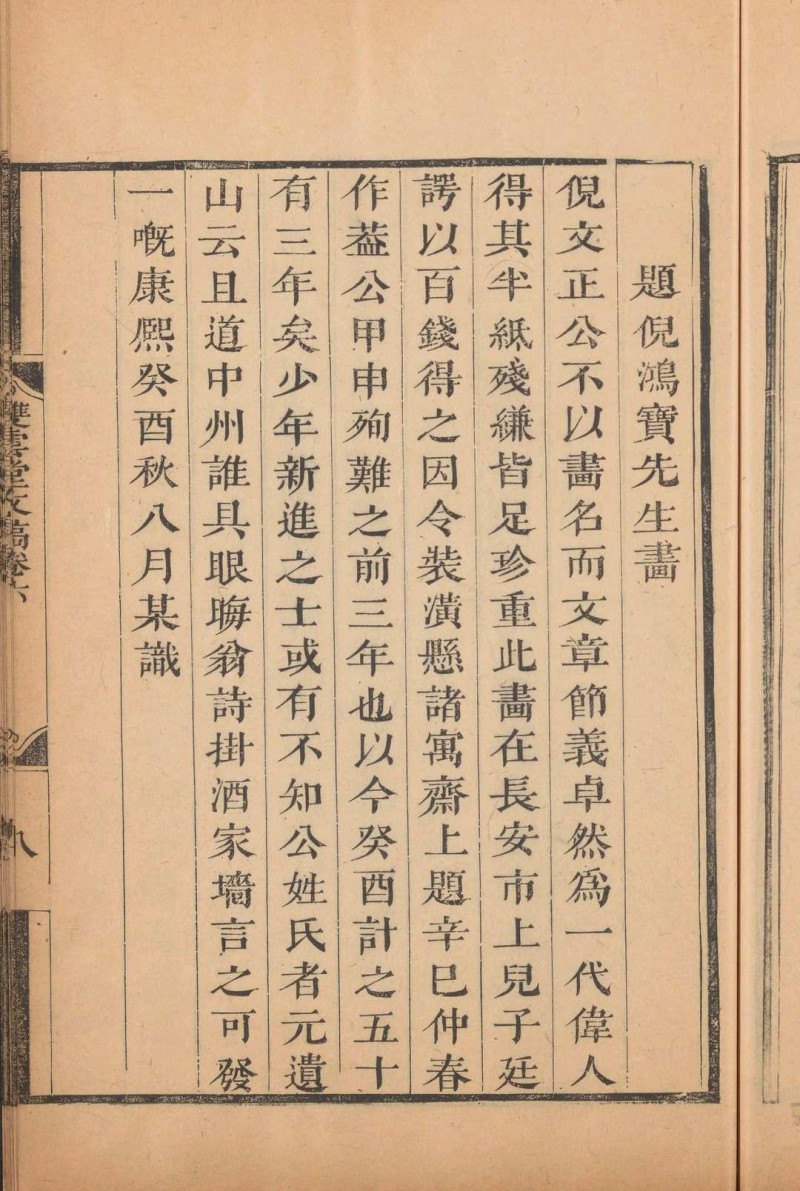 題倪鴻寶先生畵
倪文正公不以畵名而文章節義卓然爲一代偉人
得其半紙殘縑皆足珍重此畵在長安市上兒子廷
諤以百錢得之因令裝潢懸諸寓齋上題辛巳仲春
作葢公甲申殉難之前三年也以今癸酉計之五十
有三年矣少年新進之士或有不知公姓氏者元遺
山云且道中州誰具眼晦翁詩掛酒家墻言之可發
一嘅康熙癸酉秋八月某識
雙雲堂文稿卷六
八